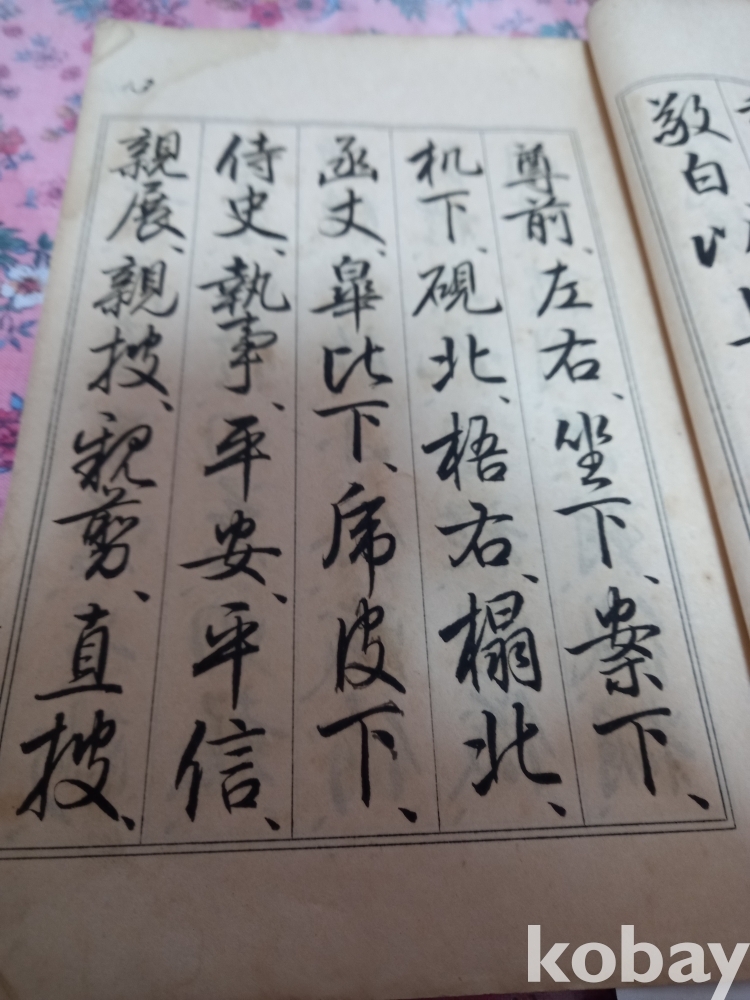 敬白
尊前、左右、坐下、案下、
机下、硯北、梧右、榻北、
函丈、皐比下、虎皮下、
侍史、執事、平安、平信、
親展、親披、親剪、直披、
kobay